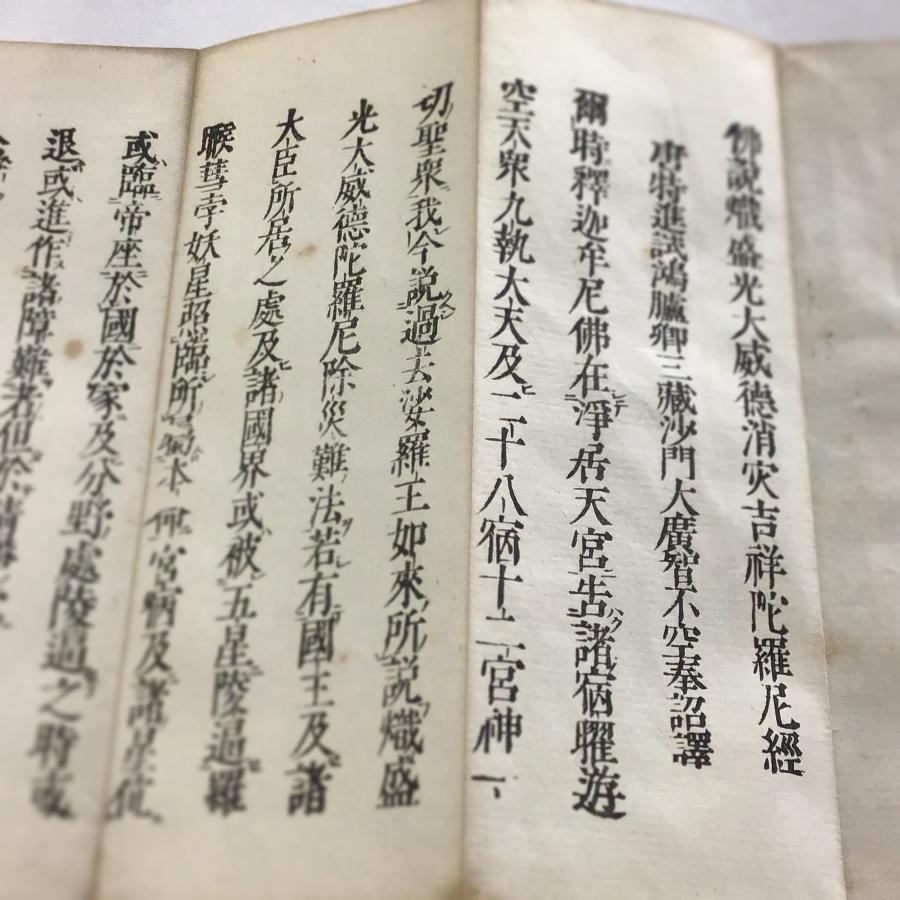 佛說熾盛光大威德消灾吉祥陀羅尼經
唐特進試鴻臚卿三藏沙門大廣智不空奉詔譯
爾時釋迦牟尼佛在淨居天宮告諸宿曜遊
空天衆九執大天及二十八宿十二宮神一
切聖衆我今説過去娑羅王如來所説熾盛
光大威德陀羅尼除災難法若有國王及諸
大臣所居之處及諸國界或被五星陵逼羅
睺彗孛妖星照臨所屬本命宮宿及諸星位
或臨帝座於國於家及分野處陵逼之時或
退或進作諸障難者但於清